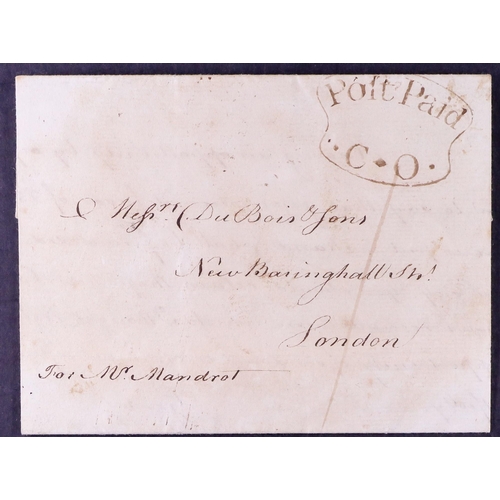 Poſt Paid
C·O·
Meſsrs. C DuBois & Sons
New Basinghall Str.
London
For Mr. Mandrot